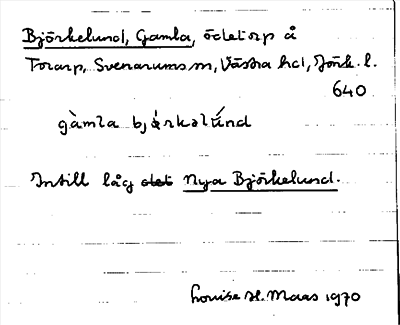 Björkelund, Gamla, ödetorp å
Torarp, Svenarums sn, Västra hd, Jönk. l.
640
gàmla bjǿrkəlúnd
Intill låg det Nya Björkelund.
Louise H. Maas 1970